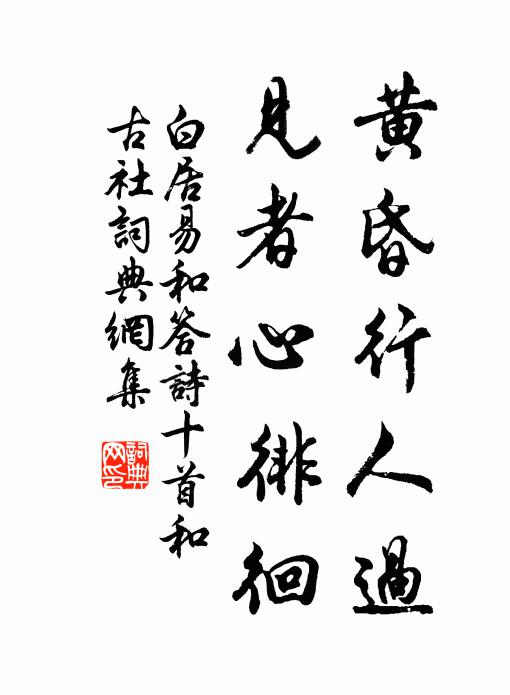 黃昏行人過
見者心徘徊
白居易和答詩十首和
古社詞典網集
詞典网印